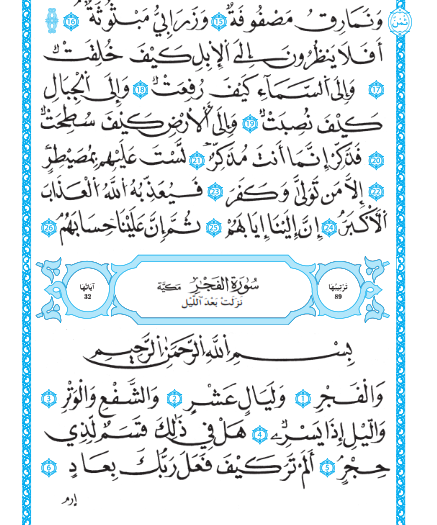 ثمن
وَنَمَارِقُ مَصْفُوفَةٌ 15 وَزَرَابِيُّ مَبْثُوثَةٌ 16
أَفَلَا يَنظُرُونَ إِلَى اَ۬لْإِبِلِ كَيْفَ خُلِقَتْ
17 وَإِلَى اَ۬لسَّمَآءِ كَيْفَ رُفِعَتْ 18 وَإِلَى اَ۬لْجِبَالِ
كَيْفَ نُصِبَتْ 19 وَإِلَى اَ۬لْأَرْضِ كَيْفَ سُطِحَتْ
20 فَذَكِّرْ إِنَّمَا أَنتَ مُذَكِّرٌ 21 لَّسْتَ عَلَيْهِم بِمُصَيْطِرٍ
22 إِلَّا مَن تَوَلَّىٰ وَكَفَرَ 23 فَيُعَذِّبُهُ اُ۬للَّهُ اُ۬لْعَذَابَ
اَ۬لْأَكْبَرَ 24 إِنَّ إِلَيْنَا إِيَابَهُمْ 25 ثُمَّ إِنَّ عَلَيْنَا حِسَابَهُم 26
تَرْتِيبُهَا 89 سُورَةُ الْفَجْرِ مَكِّيَّة آيَاتُهَا 32
نَزَلَتْ بَعْدَ اللَّيْل
بِسْمِ اِ۬للَّهِ اِ۬لرَّحْمَٰنِ اِ۬لرَّحِيمِ
وَالْفَجْرِ 1 وَلَيَالٍ عَشْرٍ 2 وَالشَّفْعِ وَالْوَتْرِ 3
وَالَّيْلِ إِذَا يَسْرِۦ 4 هَلْ فِي ذَٰلِكَ قَسَمٌ لِّذِي
حِجْرٍ 5 أَلَمْ تَرَ كَيْفَ فَعَلَ رَبُّكَ بِعَادٍ 6
إرم